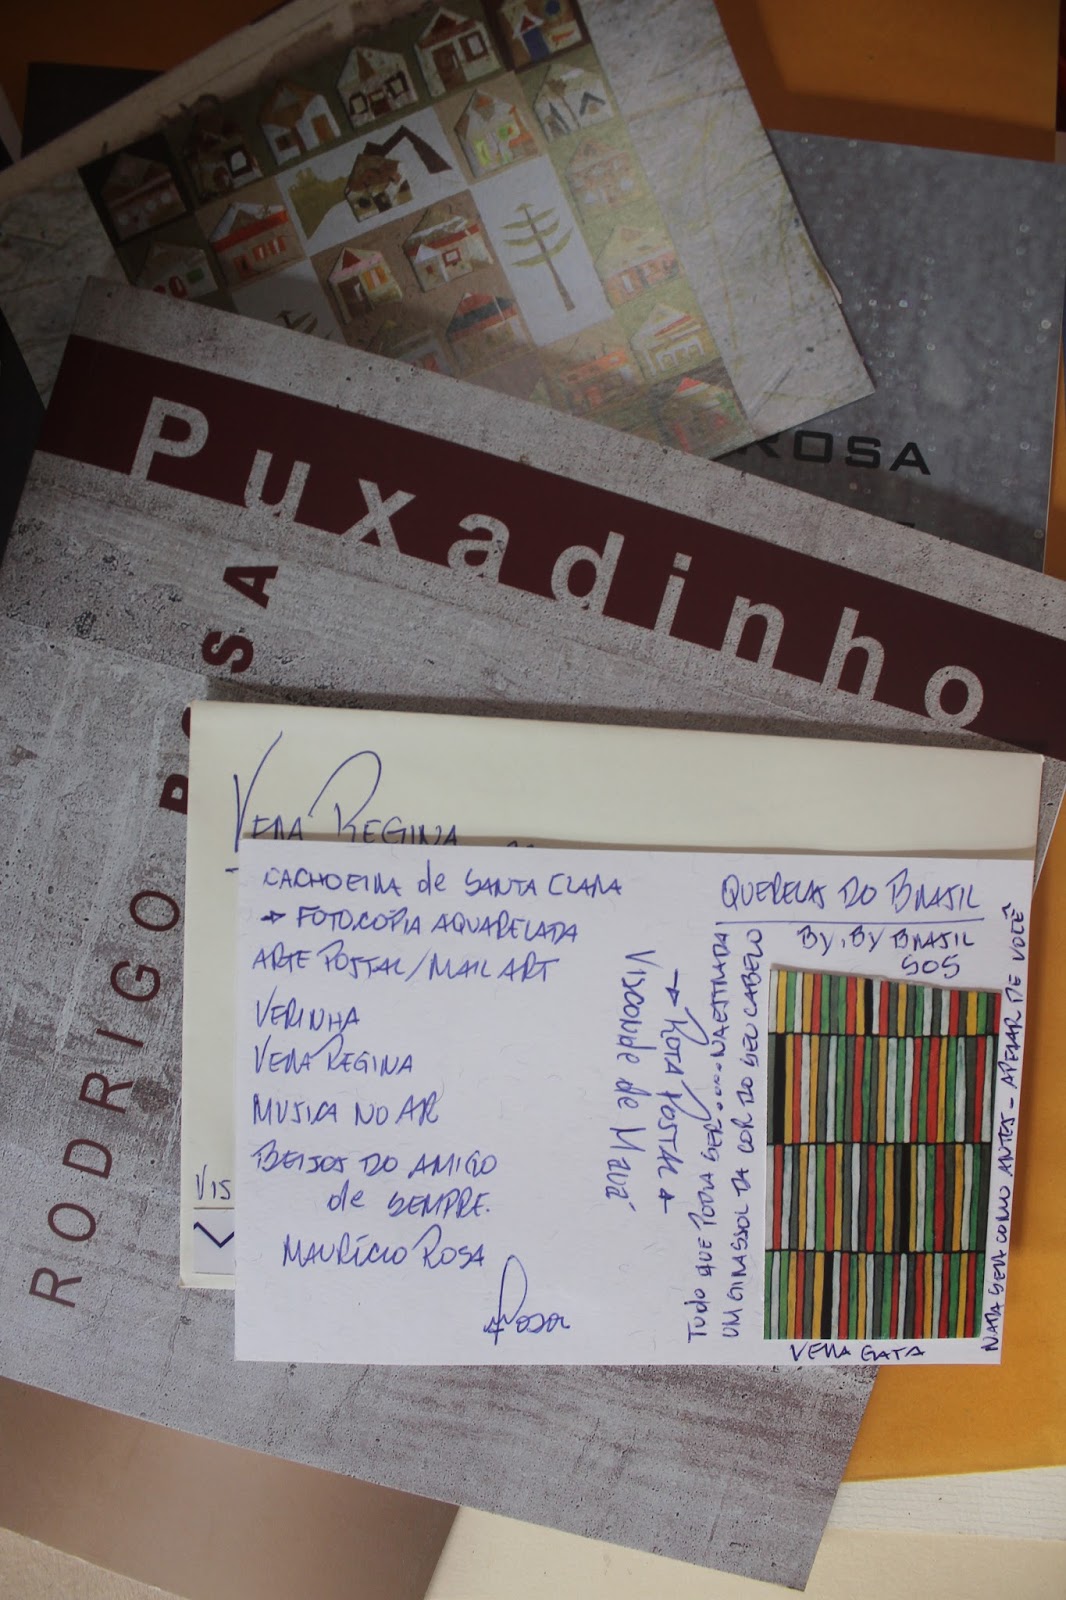 ROSA
Puxadinho
RODRIGO ROSA
VERA REGINA
VIS
CACHOEIRA de SANTA CLARA
→ FOTOCOPIA AQUARELADA
ARTE POSTAL/MAIL ART
VERINHA
VERA REGINA
MUSICA NO AR
BEIJOS DO AMIGO
de SEMPRE.
MAURÍCIO ROSA
Rosa
Visconde de Mauá
← ROTA POSTAL →
TUDO QUE PODIA SER.... NA ESTRADA
UM GIRASSOL DA COR DO SEU CABELO
QUERELAS DO BRASIL
BY, BY BRASIL
SOS
VERA GATA
NADA SERÁ COMO ANTES - APESAR DE VOCÊ